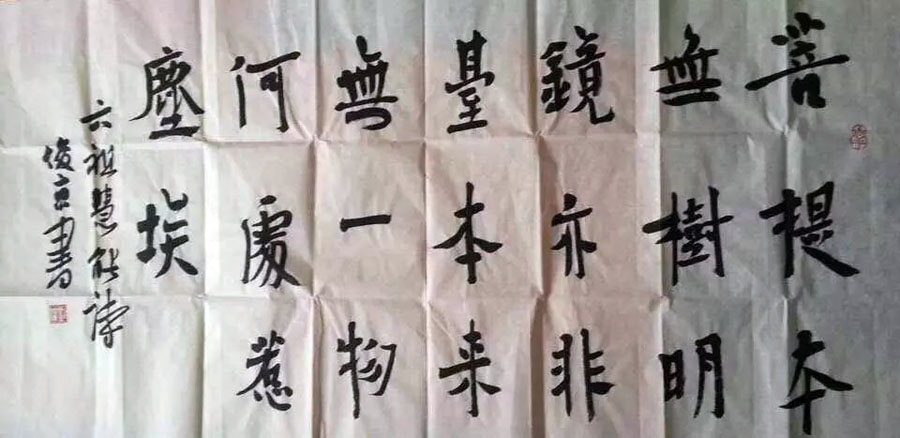 菩提本
無樹明
鏡亦非
臺本来
無一物
何處惹
塵埃
六祖慧能詩
俊 書